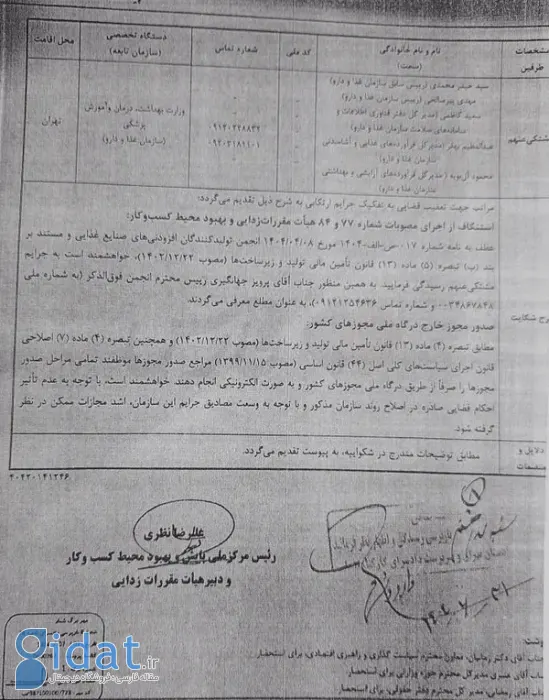 مشخصات طرفین
نام و نام خانوادگی (سمت)
کد ملی
شماره تماس
دستگاه تخصصی (سازمان تابعه)
محل اقامت
مشتکی‌عنهم
سید حیدر محمدی (رییس سابق سازمان غذا و دارو)
مهدی پیرصالحی (رییس سازمان غذا و دارو)
سعید کاظمی (مدیر کل دفتر فناوری اطلاعات و
سامانه‌های سلامت سازمان غذا و دارو)
عبدالعظیم بهفر (مدیرکل فرآورده‌های غذایی و آشامیدنی
سازمان غذا و دارو)
(مدیرکل فرآورده‌های آرایشی و بهداشتی
سازمان غذا و دارو)
وزارت بهداشت، درمان وآموزش
پزشکی
(سازمان غذا و دارو)
تهران
مراتب جهت تعقیب قضایی به تفکیک جرایم ارتکابی به شرح ذیل تقدیم می‌گردد:
شرح شکایت
استنکاف از اجرای مصوبات شماره ۷۷ و ۸۴ هیأت مقررات‌زدایی و بهبود محیط کسب‌وکار:
عطف به نامه شماره ۰۱۷-ص-الف-۱۴۰۴ مورخ ۱۴۰۴/۰۴/۰۸ انجمن تولیدکنندگان افزودنی‌های صنایع غذایی و مستند بر
بند (پ) تبصره (۵) ماده (۱۳) قانون تأمین مالی تولید و زیرساخت‌ها (مصوب ۱۴۰۲/۱۲/۲۲)، خواهشمند است به جرایم
مشتکی‌عنهم رسیدگی فرمایید. به همین منظور جناب آقای پرویز جهانگیری رییس محترم انجمن فوق‌الذکر (به شماره ملی
و شماره تماس ۰۹۱۲۱۲۵۴۶۳۶)، به عنوان مطلع معرفی می‌گردند.
صدور مجوز خارج درگاه ملی مجوزهای کشور:
مطابق تبصره (۴) ماده (۱۳) قانون تأمین مالی تولید و زیرساخت‌ها (مصوب ۱۴۰۲/۱۲/۲۲) و همچنین تبصره (۴) ماده (۷) اصلاحی
قانون اجرای سیاست‌های کلی اصل (۴۴) قانون اساسی (مصوب ۱۳۹۹/۱۱/۱۵) مراجع صدور مجوزها موظفند تمامی مراحل صدور
مجوزها را صرفاً از طریق درگاه ملی مجوزهای کشور و به صورت الکترونیکی انجام دهند. خواهشمند است، با توجه به عدم تأثیر
احکام قضایی صادره در اصلاح روند سازمان مذکور و با توجه به وسعت مصادیق جرایم این سازمان، اشد مجازات ممکن در نظر
گرفته شود.
دلایل و
منضمات
مطابق توضیحات مندرج در شکواییه، به پیوست تقدیم می‌گردد.
۲۰۲۲۰۱۴۱۲۳۶
علیرضا نظری
رئیس مرکز ملی پایش و بهبود محیط کسب و کار
و دبیر هیات مقررات زدایی
رونوشت:
جناب آقای دکتر زمانیان، معاون محترم سیاست گذاری و راهبری اقتصادی، برای استحضار
جناب آقای منبری مدیرکل محترم حوزه وزارتی برای استحضار
gidat.ir
مقاله فارسی، فروشگاه دیجیتال